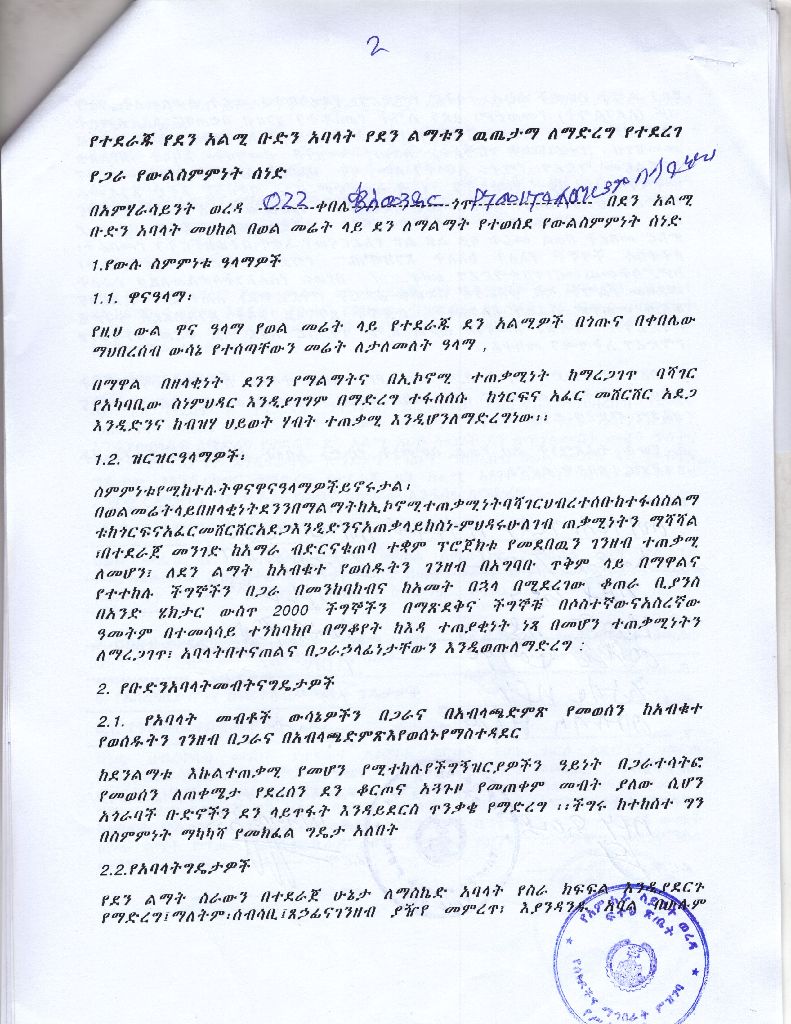 2
የተደራጁ የደን አልሚ ቡድን አባላት የደን ልማቱን ዉጤታማ ለማድረግ የተደረገ
የጋራ የውልስምምነት ሰነድ
በአምሃራሳይንት ወረዳ 022 ቀበሌ ጎጥ በደን አልሚ
ቡድን አባላት መሀከል በወል መሬት ላይ ደን ለማልማት የተወሰደ የውልስምምነት ሰነድ
1.የውሉ ስምምነቱ ዓላማዎች
1.1. ዋናዓላማ፡
የዚህ ውል ዋና ዓላማ የወል መሬት ላይ የተደራጁ ደን አልሚዎች በጎጡና በቀበሌው
ማህበረሰብ ውሳኔ የተሰጣቸውን መሬት ለታለመለት ዓላማ ,
በማዋል በዘላቂነት ደንን የማልማትና በኢኮኖሚ ተጠቃሚነት ከማረጋገጥ ባሻገር
የአካባቢው ስነምህዳር እንዲያገግም በማድረግ ተፋሰሱ ከጎርፍና አፈር መሸርሸር አደጋ
እንዲድንና ከብዝሃ ህይወት ሃብት ተጠቃሚ እንዲሆንለማድረግነው፡፡
1.2. ዝርዝርዓላማዎች፡
ስምምነቱየሚከተሉትዋናዋናዓላማዎችይኖሩታል፤
በወልመሬትላይበዘላቂነትደንንበማልማትከኢኮኖሚተጠቃሚነትባሻገርህብረተሰቡከተፋሰስልማ
ቱከጎርፍናአፈርመሸርሸርአደጋእንዲድንናአጠቃላይከስነ-ምህዳሩሁለገብ ጠቃሚነትን ማሻሻል
፤በተደራጀ መንገድ ከአማራ ብድርናቁጠባ ተቋም ፕሮጀክቱ የመደበዉን ገንዘብ ተጠቃሚ
ለመሆን፤ ለደን ልማት ከአብቁተ የወሰዱትን ገንዘብ በአግባቡ ጥቅም ላይ በማዋልና
የተተከሉ ችግኞችን በጋራ በመንከባከብና ከአመት በኋላ በሚደረገው ቆጠራ ቢያንስ
በአንድ ሄክታር ውስጥ 2000 ችግኞችን በማጽደቅና ችግኞቹ በሶስተኛውናአስረኛው
ዓመትም በተመሳሳይ ተንከባክቦ በማቆየት ከእዳ ተጠያቂነት ነጻ በመሆን ተጠቃሚነትን
ለማረጋገጥ፤ አባላትበተናጠልና በጋራኃላፊነታቸውን እንዲወጡለማድረግ :
2. የቡድንአባላትመብትናግዴታዎች
2.1. የአባላት መብቶች ውሳኔዎችን በጋራና በአብላጫድምጽ የመወሰን ከአብቁተ
የወሰዱትን ገንዘብ በጋራና በአብላጫድምጽእየወሰኑየማስተዳደር
ከደንልማቱ እኩልተጠቃሚ የመሆን የሚተከሉየችግኝዝርያዎችን ዓይነት በጋራተሳትፎ
የመወሰን ለጠቀሜታ የደረሰን ደን ቆርጦና አጓጉዞ የመጠቀም መብት ያለው ሲሆን
አጎራባች ቡድኖችን ደን ላይጥፋት እንዳይደርስ ጥንቃቄ የማድረግ ፡፡ችግሩ ከተከሰተ ግን
በስምምነት ማካካሻ የመክፈል ግዴታ አለበት
2.2.የአባላትግዴታዎች
የደን ልማት ስራውን በተደራጀ ሁኔታ ለማስኬድ አባላት የስራ ክፍፍል እንዲያደርጉ
የማድረግ፤ማለትም፡ሰብሳቢ፤ጸኃፊናገንዘብ ያዥየ መምረጥ፤ እያንዳንዱ አባል በሁሉም